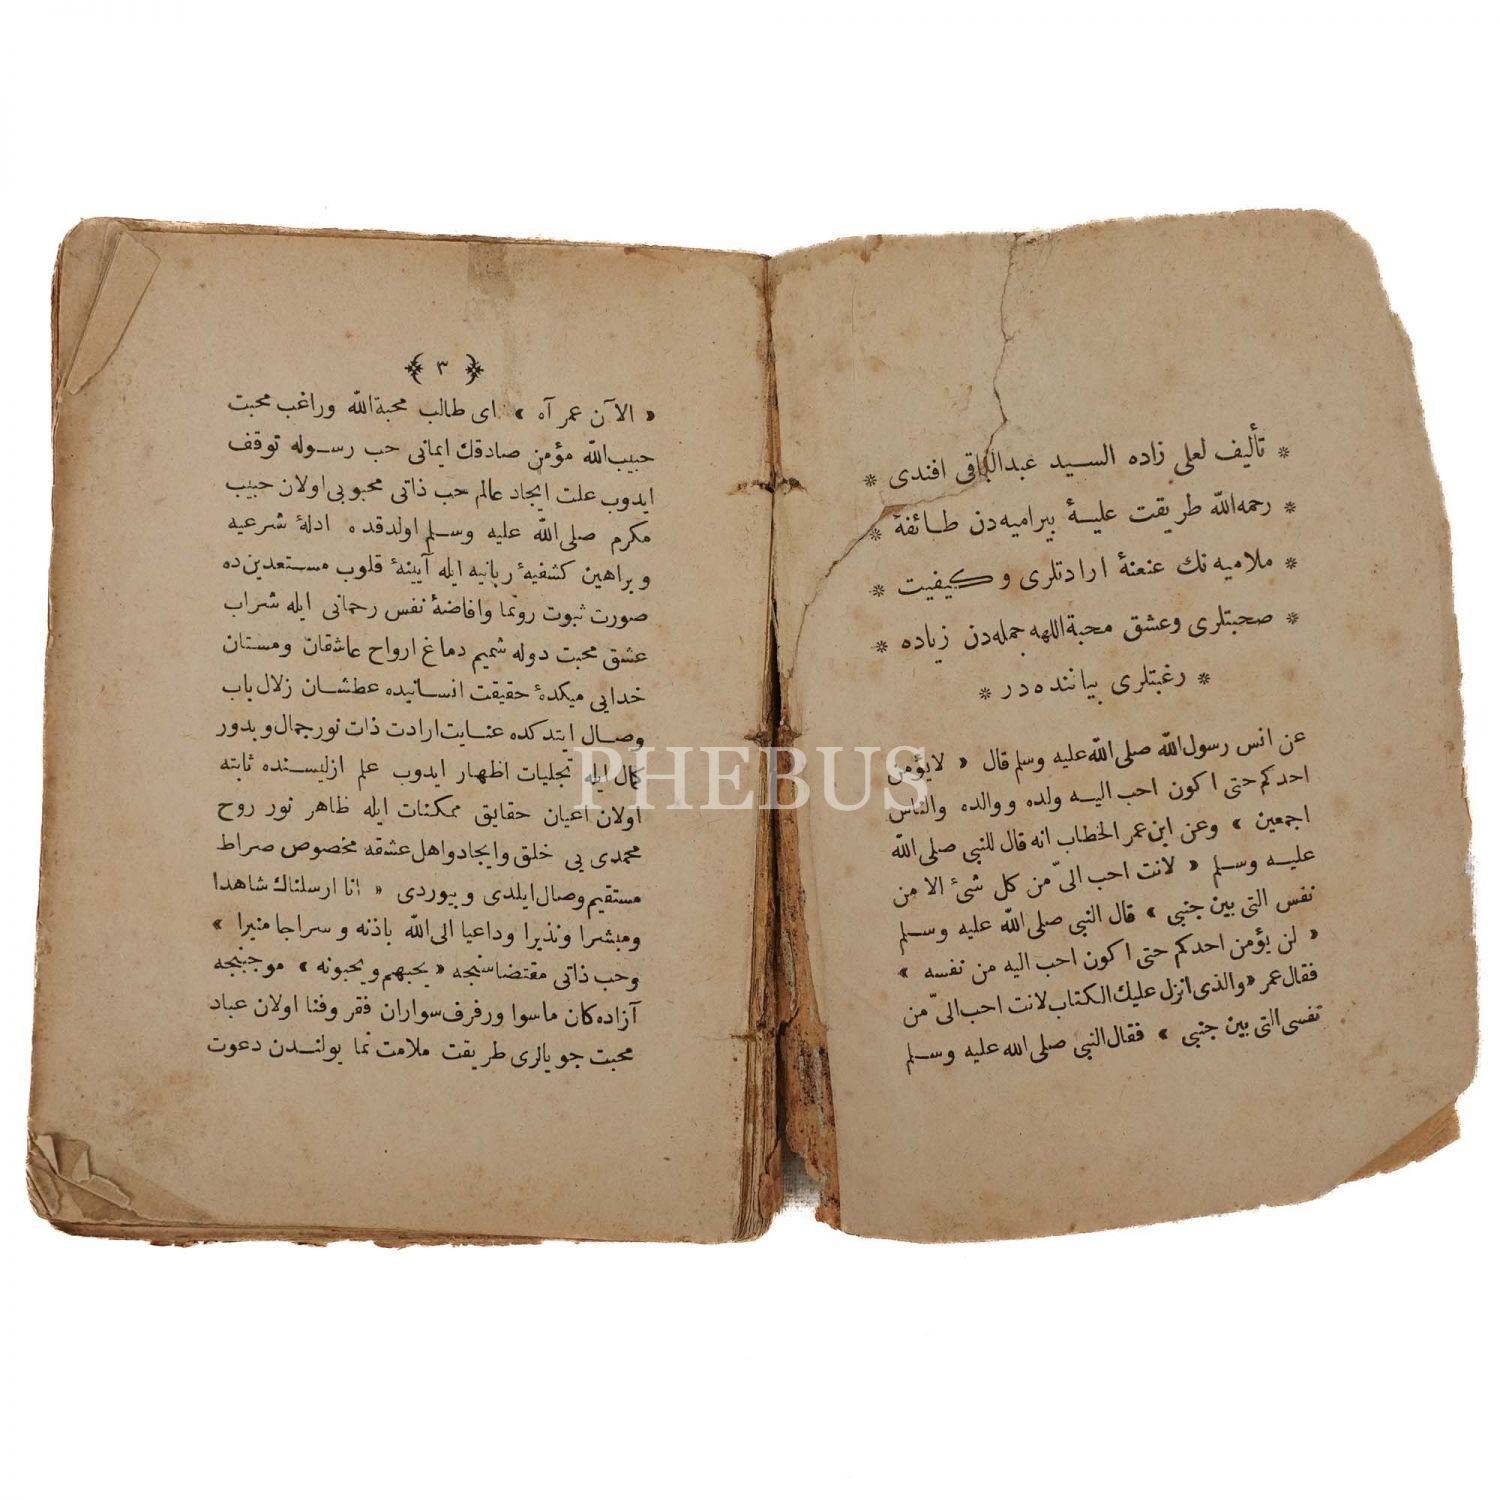 * تأليف لعلى زاده السيد عبدالباقى افندى *
* رحمه‌الله طريقت عليۀ بيراميه‌دن طائفۀ *
* ملاميه نك عنعنۀ ارادتلرى و كيفيت *
* صحبتلرى وعشق محبة‌اللهه جمله‌دن زياده *
* رغبتلرى بياننده‌در *
عن انس رسول‌الله صلى‌الله عليه وسلم قال « لايؤمن
احدكم حتى اكون احب اليه ولده ووالده والناس
اجمعين » وعن ابن عمر الخطاب انه قال للنبى صلى‌الله
عليه وسلم « لانت احب الىّ من كل شئ الا من
نفس التى بين جنبى » قال النبى صلى‌الله عليه وسلم
« لن يؤمن احدكم حتى اكون احب اليه من نفسه »
فقال عمر « والذى انزل عليك الكتاب لانت احب الىّ من
نفسى التى بين جنبى » فقال النبى صلى‌الله عليه وسلم
﴿ ٣ ﴾
« الآن عمر آه » اى طالب محبة‌الله وراغب محبت
حبيب‌الله مؤمن صادقك ايمانى حب رسوله توقف
ايدوب علت ايجاد عالم حب ذاتى محبوبى اولان حبيب
مكرم صلى‌الله عليه وسلم اولدقده ادلۀ شرعيه
و براهين كشفيۀ ربانيه ايله آيينۀ قلوب مستعدين‌ده
صورت ثبوت رونما وافاضۀ نفس رحمانى ايله شراب
عشق محبت دوله شميم دماغ ارواح عاشقان ومستان
خدايى ميكدۀ حقيقت انسانيده عطشان زلال ياب
وصال ايتدكده عنايت ارادت ذات نورجمال وبدور
كمال ايله تجليات اظهار ايدوب علم ازليسنده ثابته
اولان اعيان حقايق ممكنات ايله ظاهر نور روح
محمدى يى خلق وايجاد واهل عشقه مخصوص صراط
مستقيم وصال ايلدى و بيوردى « انا ارسلناك شاهدا
ومبشرا ونذيرا وداعيا الى‌الله باذنه وسراجا منيرا »
وحب ذاتى مقتضاسنجه « يحبهم ويحبونه » موجبنجه
آزاده‌كان ماسوا ورفرف سواران فقر وفنا اولان عباد
محبت جويالرى طريقت ملامت نما يولندن دعوت
PHEBUS